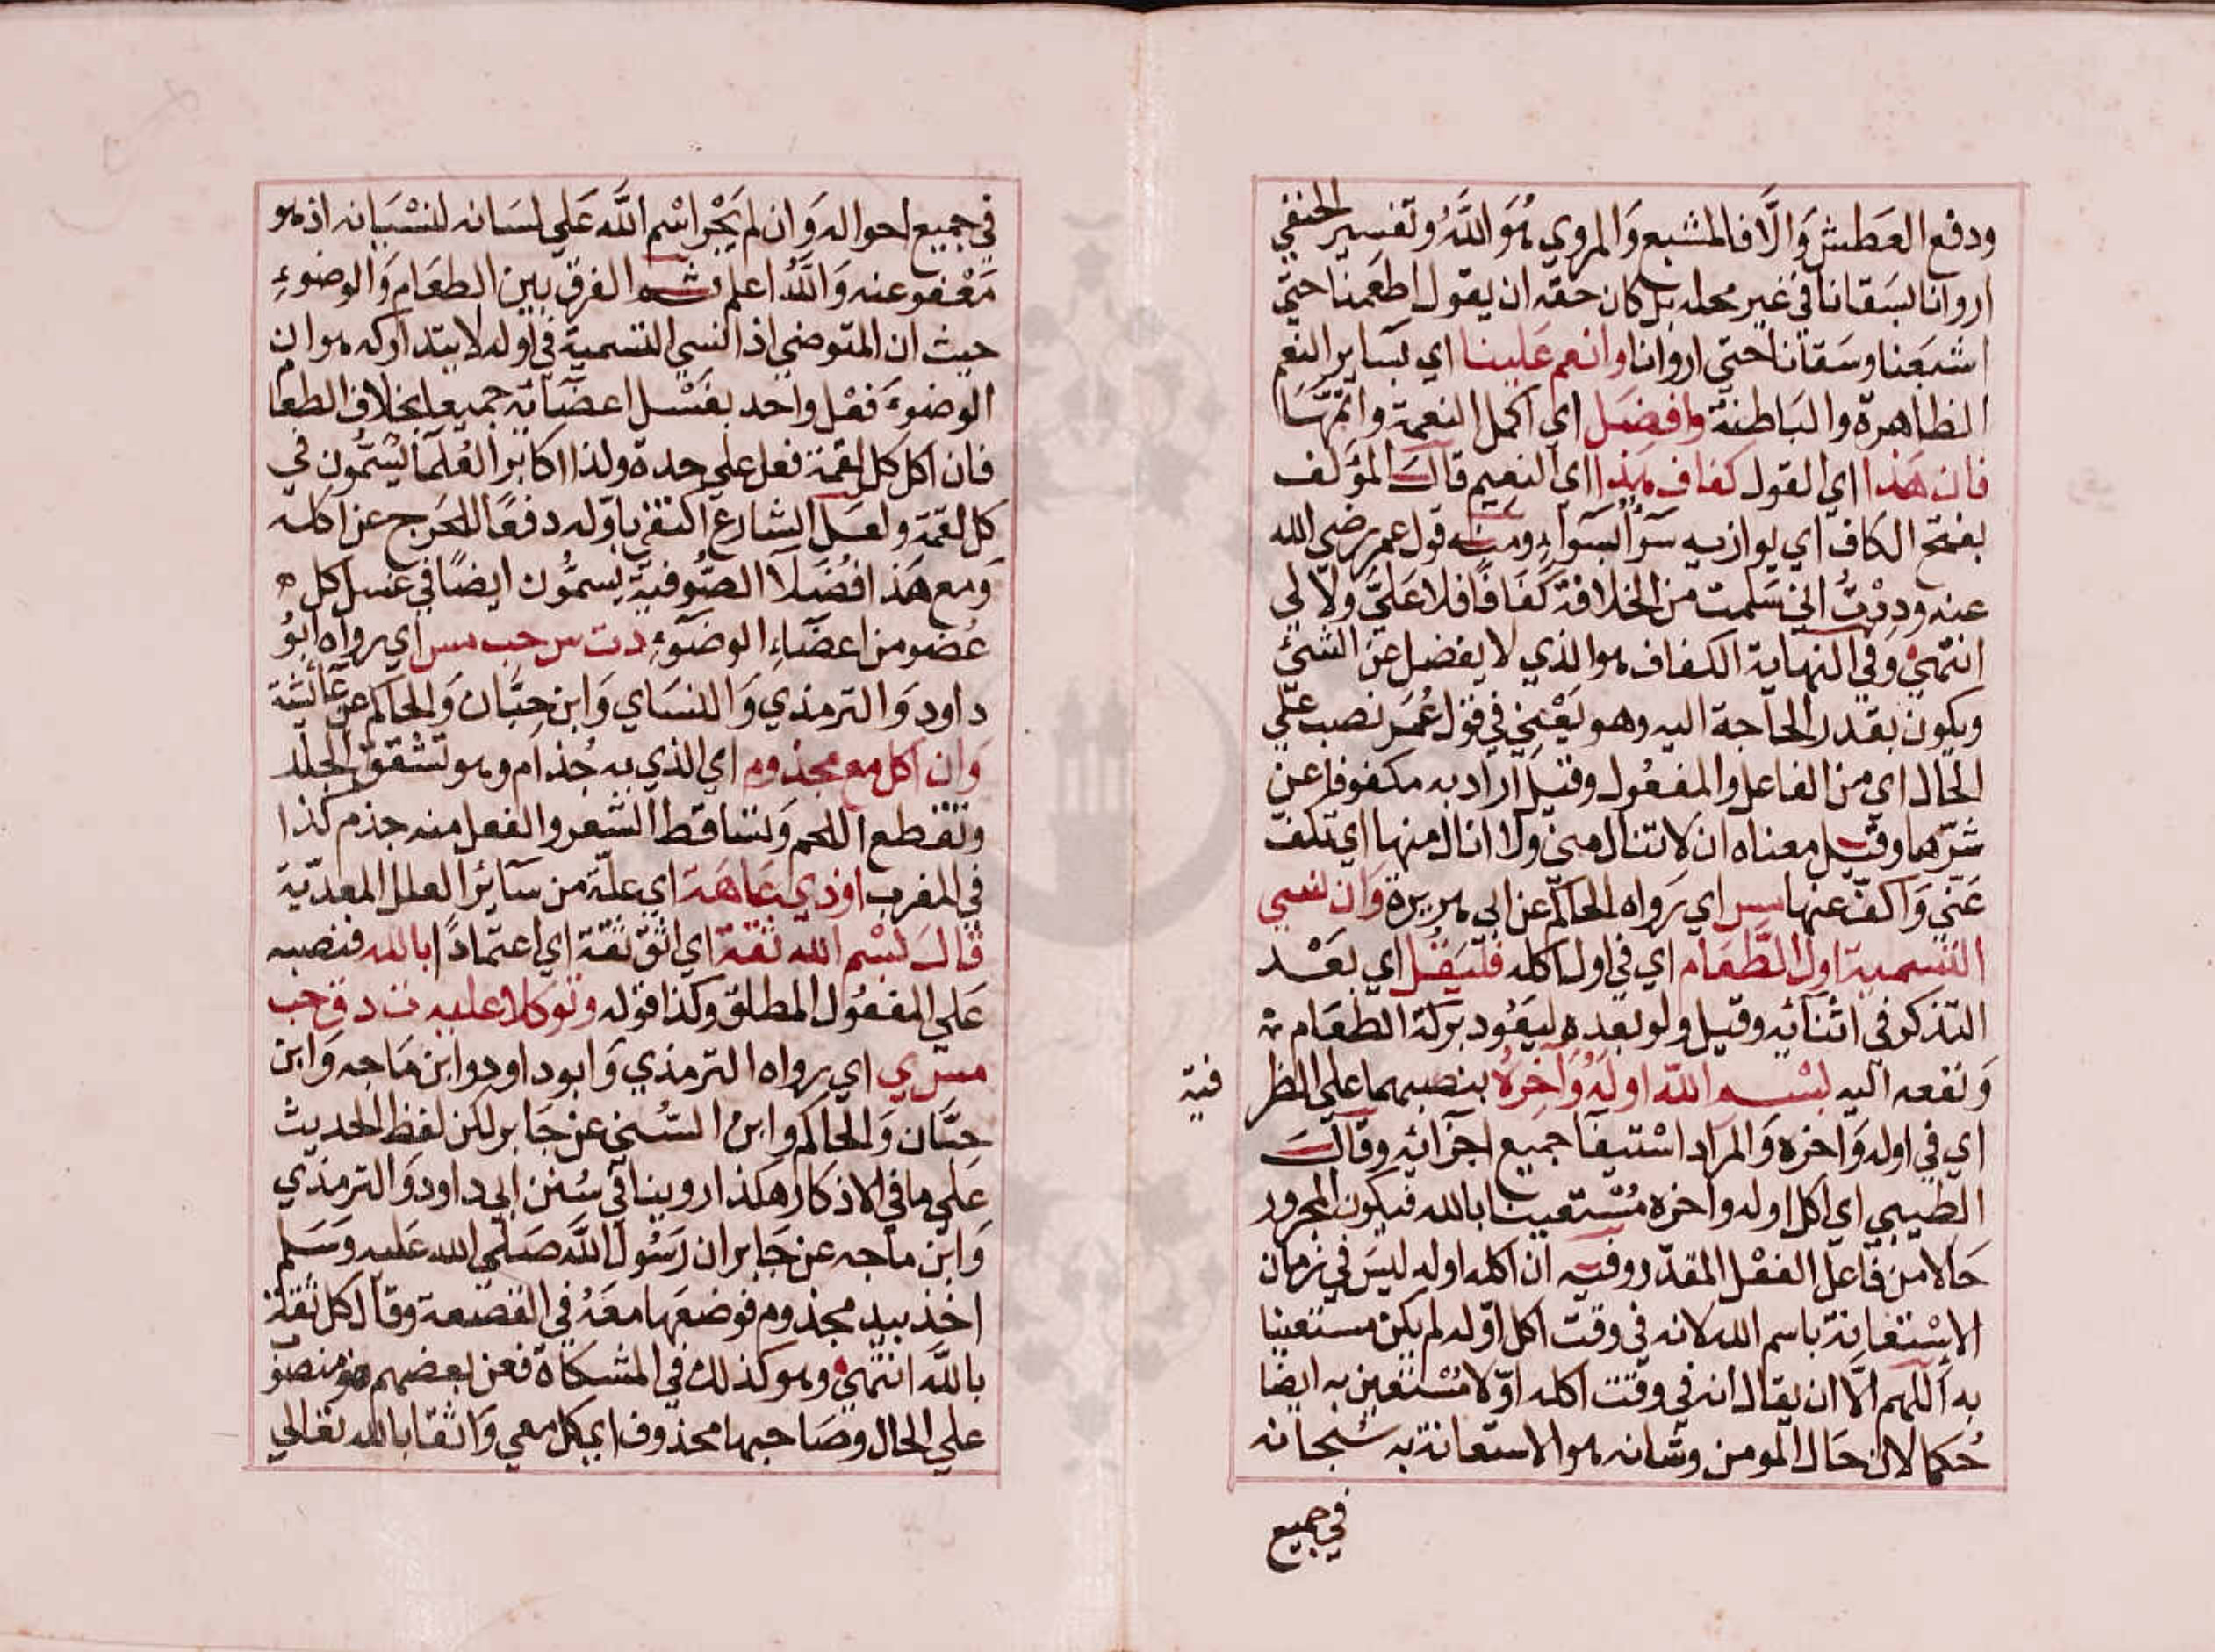 ودفع العطش وَالَّا فالمشبع وَالمروي هُوَ اللَّهُ وتفسير الحنفي
اروانا بسَقانا في غير محله بل كان حقه ان يقول اطعَمنا حتي
اشبَعنا وسَقانا حتي اروانا وانعم عَلينا اي بسَاير النعم
الظاهرة والبَاطنة وافضَل اي اكمل النعمة واتمّهَا
فان هَذا اي القول كفاف هذا اي النعيم قالَ المؤلف
بفتح الكاف اي يوازيه سَوَاٌ بسَوَاءٍ ومنه قول عمر رضي الله
عنه ودِدْتُ اني سَلمت من الخلافة كَفَافًا فلا عَليَّ ولا لي
انتهي وفي النهاية الكفاف هو الذي لا يفضل عن الشئ
ويكون بقدر الحاجة اليه وهو يَعْنِي في قول عُمَر نصب علي
الحال اي من الفاعل والمفعُول وقيل اراد به مكفوفا عن
شرّهما وقيل معناه ان لا تنال مني ولا انال منها اي تكفّ
عَني وَاكفّ عنها مس اي رَواه الحاكم عن ابي هريرة وَان نسي
التسمية اول الطَّعَام اي في اول اكله فليَقُل اي بَعْد
التذكر في اثنائه وقيل ولو بعده ليَعُود بركة الطعَام
وَنفعه اليه بسْم الله اوله وَاٰخِرهُ بنصبهما علي الظر
فية
اي في اوله وَاخره وَالمراد اسْتيفَا جميع اجزائه وقالَ
الطيبي اي اكل اوله واخره مُسْتعينا بالله فيكون المجرور
حَالا من فاعل الفعْل المقدّر وفيه ان اكله اوله ليسَ في زمان
الاِسْتعَانة باسم الله لانه في وقت اكل اوّله لم يكن مستعينا
به اَللهم الَّا ان يقال انه في وقت اكله اوّلا مُسْتعين به ايضا
حُكما لان حَال المومن وشانه هو الاستعانة به سُبحانه
في جميع
في جميع احواله وَان لم يَجْر اسْم اللَّه عَلي لسَانه لنسْيَانه اذ هو
مَعْفو عنه وَاللَّهُ اعلم ثم الفرق بين الطعَام وَالوضوءِ
حيث ان المتوضي اذا نسي التسمية في اوله لا يتداركه هو ان
الوضوءَ فعْل واحد بغسْل اعضَائه جميعا بخلاف الطعا
فان اكل كل لقمة فعل علي حدة ولذا اكابر العُلمَا يُسَمُّون في
كل لقمَة ولعَل الشارع اكتفي باوّله دفعًا للحَرج عن اكله
وَمع هَذا فُضَلا الصُّوفيَّة يسمُّون ايضًا في غسل كل
عُضو من اعضَاءِ الوضَوءِ دت س حب مس اي رواه ابُو
داود وَالترمذي وَالنسَاي وَابن حبَّان وَالحاكم عن عَائشة
وَان اكل مع مجذوم اي الذي به جُذام وهو تشقق الجلد
وتقطع اللحم وَتساقط الشعر والفعل منه جذم كذا
في المغرب اوذي عَاهَة اي علّة من سَائر العلل المعدّية
قالَ بسْم الله ثقةً اي اثق ثقة اي اعتمادًا بالله فنصبه
عَلي المفعُول المطلق وكذا قوله وتوكلا عليه ت د ق حب
مس ي اي رواه الترمذي وَابو داود وابن مَاجه وَابن
حبّان وَالحاكم وابن السُّني عن جَابر لكن لفظ الحديث
عَلي ما في الاذكار هكذا روينا في سُنن ابي داود وَالترمذي
وَابن ماجه عن جَابر ان رَسُول اللَّه صَلّي الله عَليه وَسَلم
اخذ بيد مجذوم فوضعَها معَهُ في القصعة وقال كل ثقة
باللَّه انتهي وهو كذلك في المشكاة فعن بعضهم هو منصو
علي الحال وصَاحبها محذوف اي كل معي وَاثقا بالله تعالي